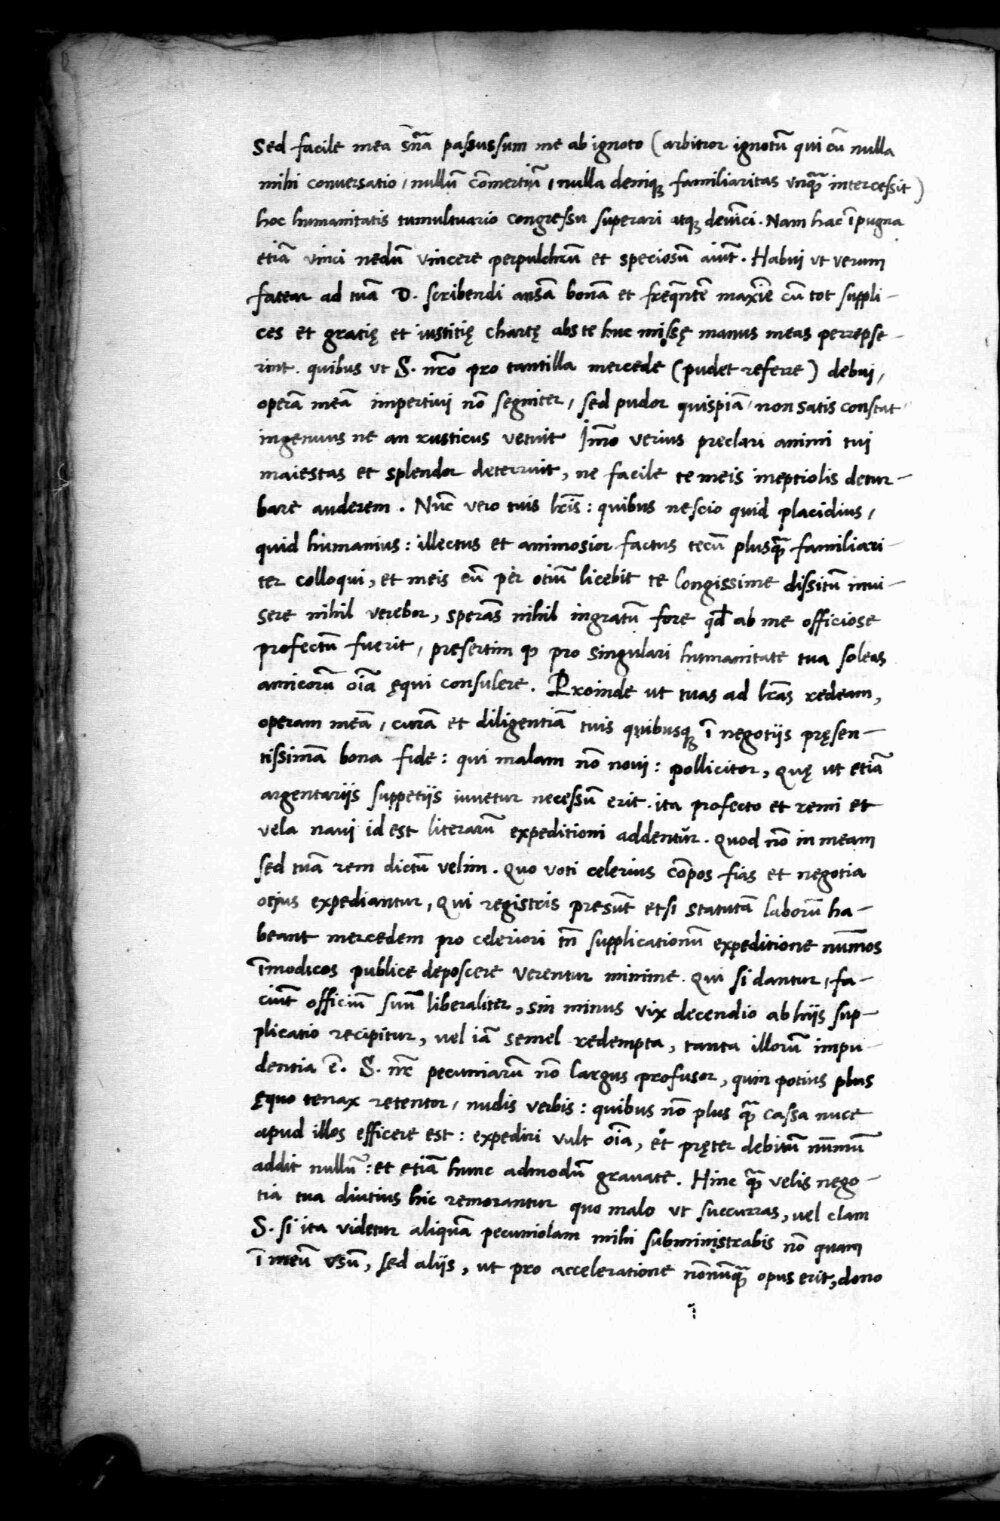 Sed facile mea sñia passus sum me ab ignoto (arbitror ignotū qui cū nulla
mihi conversatio, nullū cōmertiū, nulla deniqꝫ familiaritas vnqꝫ̄ intercessit)
hoc humanitatis tumultuario congressu superari atqꝫ devīci. Nam hac ī pugna
etiā vinci nedū vincere perpulchrū et speciosū aiūt. Habui vt verum
fatear ad tuā D. scribendi ansā bonā et freqūtē maxīe cū tot suppli-
ces et gratię et iustitię chartę abs te huc missę manus meas perrepse-
rint. quibus vt S. nr̄o pro tantilla mercede (pudet referre) debui,
operā meā impertivi nō segniter, sed pudor quispiā, non satis constat
ingenuus ne an rusticus vetuit Īmo verius preclari animi tui
maiestas et splendor deterruit, ne facile te meis ineptiolis detur-
bare auderem. Nūc vero tuis lr̄is: quibus nescio quid placidius,
quid humanius: illectus et animosior factus tecū plusqꝫ̄ familiari-
ter colloqui, et meis cū per otiū licebit te longissime dissitū invi-
sere nihil verebor, sperās nihil ingratū fore qđ ab me officiose
profectū fuerit, presertim ꝙ pro singulari humanitate tua soleas
amicorū oīa ęqui consulere. Proinde ut tuas ad lr̄as redeam,
operam meā, curā et diligentiā tuis quibusqꝫ ī negotijs pręsen-
tissimā bona fide: qui malam nō novi: pollicitor, quę ut etiā
argentarijs suppetijs iuvetur necessū erit. ita profecto et remi et
vela navi id est literarū expeditioni addentur. Quod nō in meam
sed tuā rem dictū velim. Quo voti celerius cōpos fias et negotia
otjus expediantur, Qui registris presūt etsi statutā laborū ha-
beant mercedem pro celeriori tn̄ supplicationū expeditione nūmos
īmodicos publice deposcere verentur minime. Qui si dantur, fa-
ciūt officiū suū liberaliter, sin minus vix decendio ab hijs sup-
plicatio recipitur, vel iā semel redempta, tanta illorū impu-
dentia ē. S. nr̄ pecuniarū nō largus profusor, quin potius plus
ęquo tenax retentor, nudis verbis: quibus nō plus qꝫ̄ cassa nuce
apud illos efficere est: expediri vult oīa, et pręter debitū nūmū
addit nullū: et etiā hunc admodū gravate. Hinc qꝫ̄ velis nego-
tia tua diutius hic remorantur quo malo ut succurras, vel clam
S. si ita videtur aliquā pecuniolam mihi subministrabis nō quam
ī meū vsū, sed alijs, ut pro acceleratione nōnūqꝫ̄ opus erit, dono